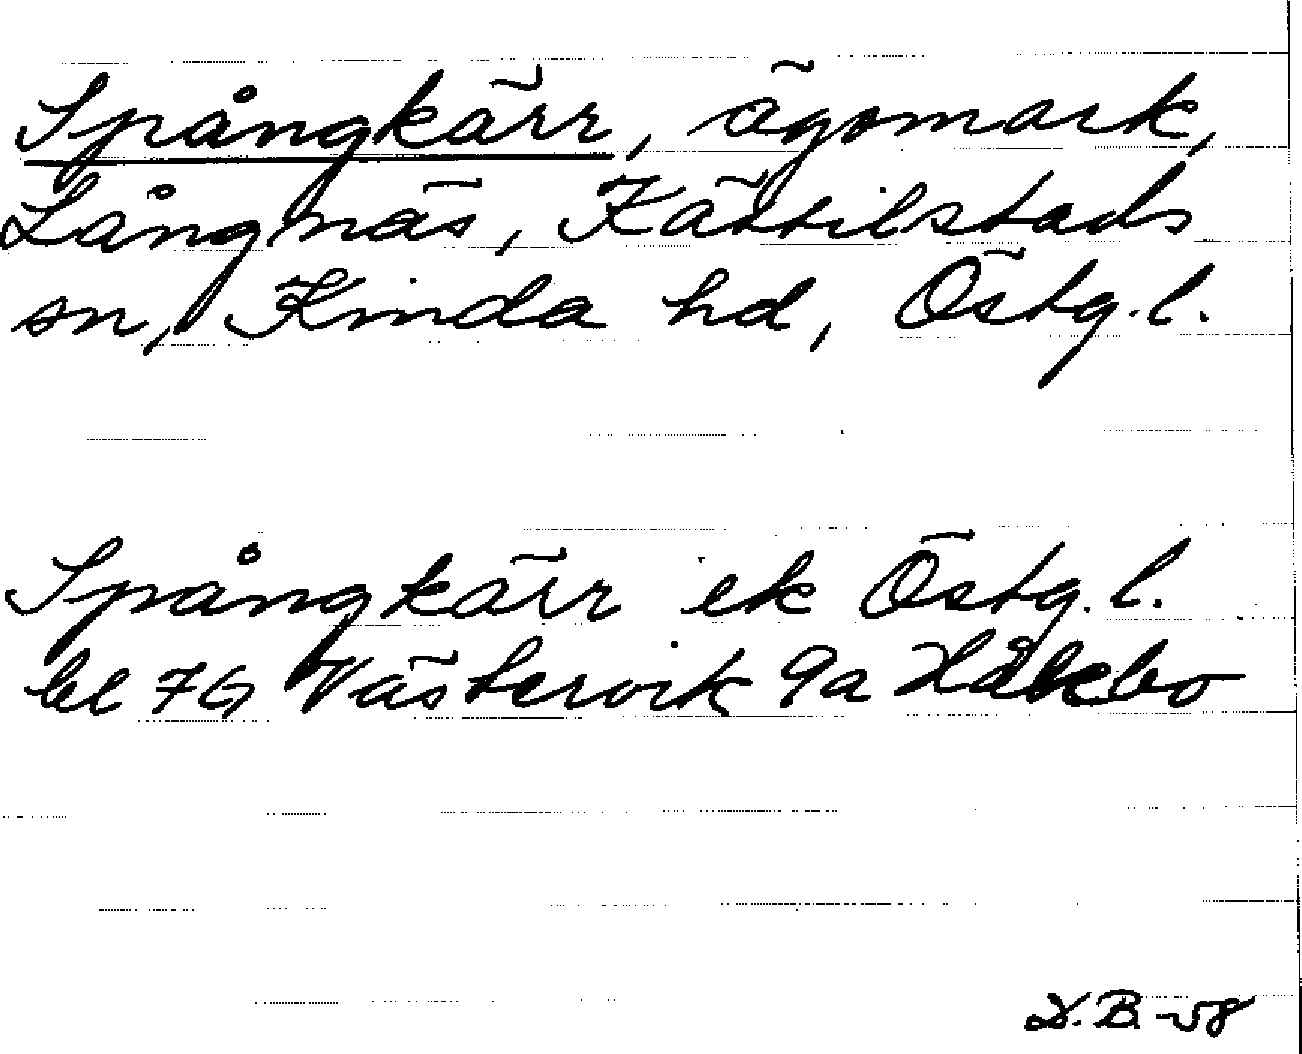 Spångkärr, ägomark,
Långnäs, Kättilstads
sn, Kinda hd, Östg.l.
Spångkärr ek Östg.l.
bl 7G Västervik 9a Håkbo
D.B-58